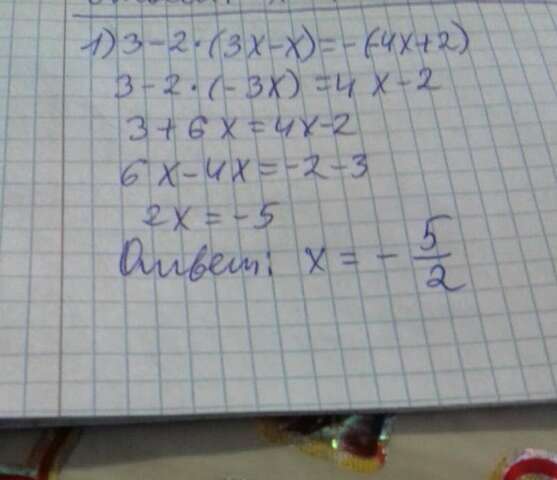 1) 3-2·(3x-x)=-(-4x+2)
3-2·(-3x)=4x-2
3+6x=4x-2
6x-4x=-2-3
2x=-5
Ответ: x=-5/2